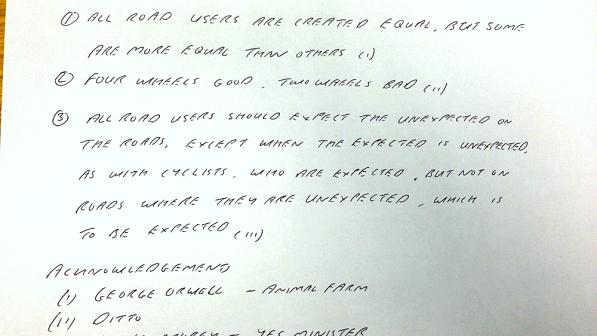 ① ALL ROAD USERS ARE CREATED EQUAL, BUT SOME
ARE MORE EQUAL THAN OTHERS (i)
② FOUR WHEELS GOOD. TWO WHEELS BAD (ii)
③ ALL ROAD USERS SHOULD EXPECT THE UNEXPECTED ON
THE ROADS, EXCEPT WHEN THE EXPECTED IS UNEXPECTED,
AS WITH CYCLISTS, WHO ARE EXPECTED, BUT NOT ON
ROADS WHERE THEY ARE UNEXPECTED, WHICH IS
TO BE EXPECTED (iii)
ACKNOWLEDGEMENTS
(i) GEORGE ORWELL - ANIMAL FARM
(ii) DITTO
- YES MINISTER